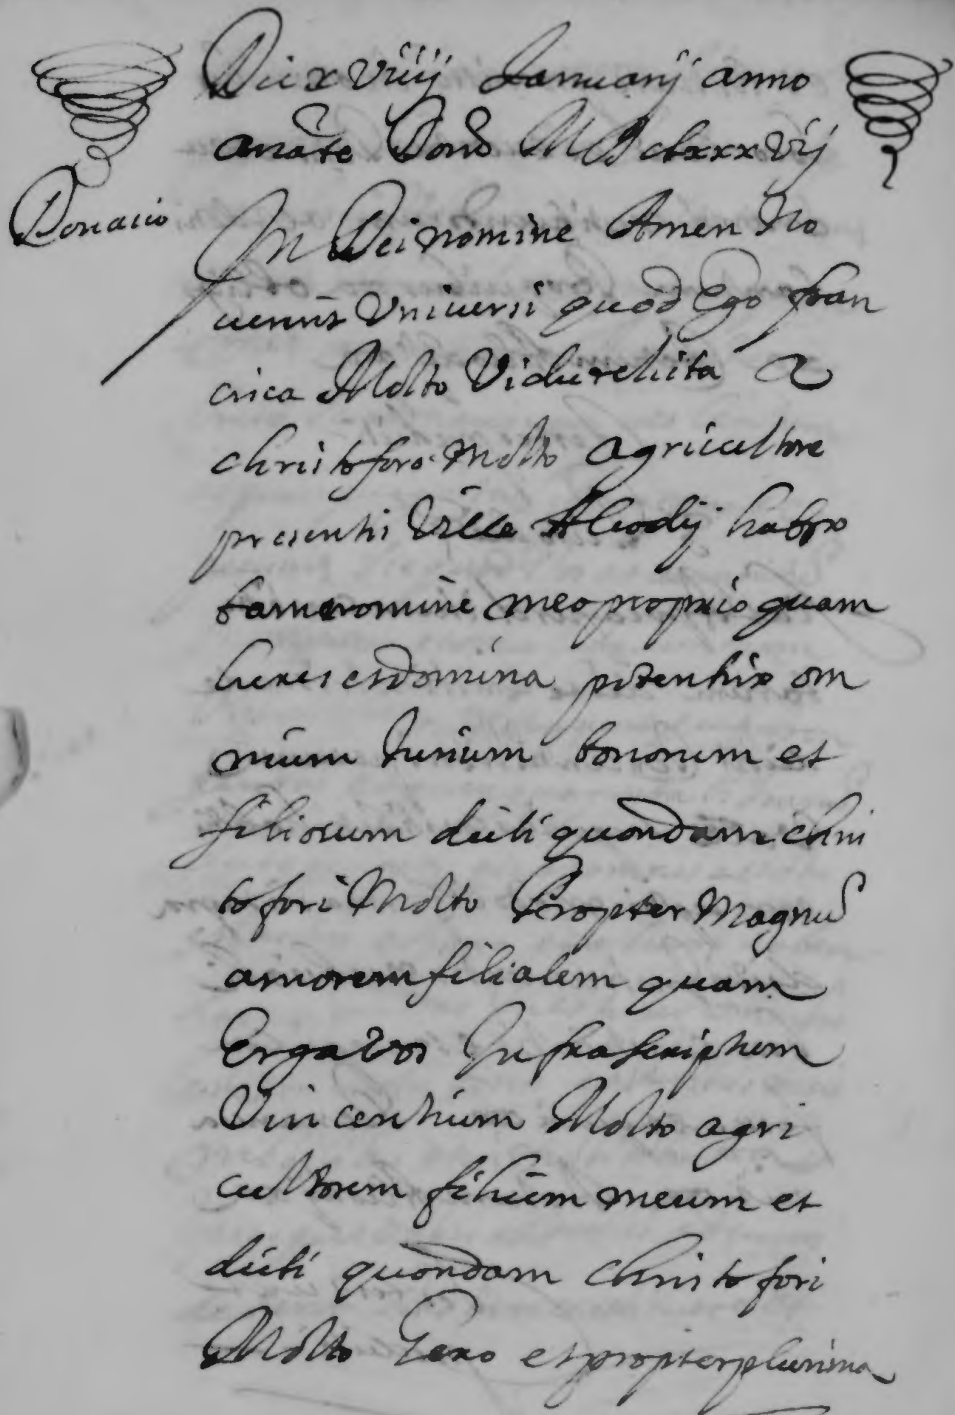 Die xviiij Januarij anno
a natẽ Domĩ MDclxxxvij
Donacio
In Dei nomine Amen No
uerint Vniuersi quod Ego fran
cisca Molto Vidu relicta a
christoforo Molto agricultore
presentis Ville Alcodij habr̃x
tam nomine meo proprio quam
heres et domina potentix om
nium Jurium bonorum et
filiorum dicti quondam chris
tofori Molto Propter Magnũ
amorem filialem quam
Erga Vos Infrascriptum
Vincentium Molto agri
cultorem filium meum et
dicti quondam christofori
Molto Gero et propter plurima